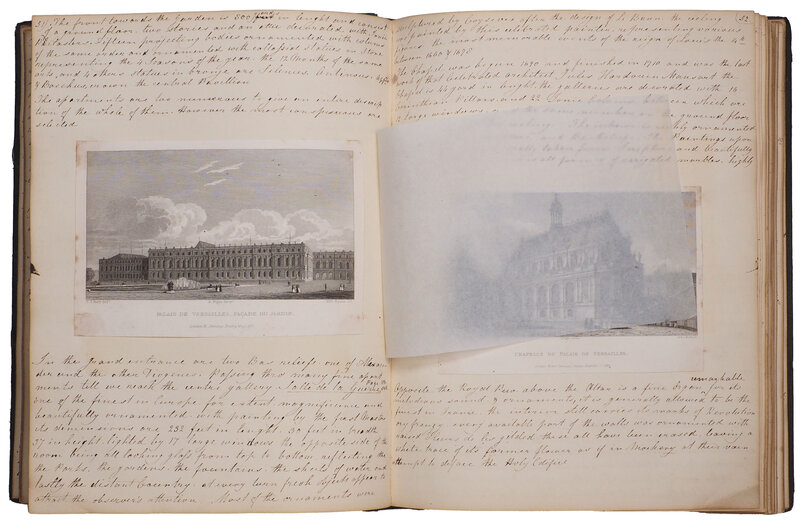 51
The front towards the Garden is 800 yards in lenght and consist
of a ground floor two stories and an attic decorated with Ionic
Pilasters. Fifteen projecting bodies ornamented with columns
of the same order and ornamented with collossal statues in stone
representing the 4 seasons of the year the 12 Months of the same
arts, and 4 others statues in bronze are Silenus, Antenous Apollo
& Bacchus, crown the central Pavillion
The apartments are too numerous to give an entire descrip
tion of the whole of them. However the most conspicuous are
selected
PALAIS DE VERSAILLES, FAÇADE DU JARDIN.
In the grand entrance are two Bas reliefs one of Alexan
der and the other Diogenes. Passing thro many fine apart
ments till we reach the center gallery Salle de la Guerre
one of the finest in Europe for extent magnificence and
beautifully ornamented with painting by the first Masters
its dimensions are 232 feet in lenght, 30 feet in breadth
37 in height lighted by 17 large windows the opposite side of the
room being all looking glass from top to bottom reflecting the
the Parks. the gardens. the fountains. the sheets of water and
lastly the distant Country. at every turn fresh objects appear to
attract the observer's attention. Most of the ornaments were
52
sculptured by Coysevox after the design of Le Brun the ceiling
is painted by this celebrated painter, representing various
the memorable events of the reign of Louis the 14th
between 1660 & 1678
The Chapel was begun 1690 and finished in 1710 and was the last
work of that celebrated architect, Jules Hardouin Mansart the
Chapel is 44 yard in lenght, the galleries are decorated with 14
Corinthian Pillars and 22 Ionic columns between which are
large windows, and the same number on the ground floor
richly ornamented
Paintings upon
and beautifully
marbles. highly
CHAPELLE DU PALAIS DE VERSAILLES.
remarkable
Opposite the Royal Pew above the Altar is a fine Organ for its
melodious sound & ornaments, it is generally allowed to be the
first in France the interior still carries its marks of Revolution
ary frenzy every available part of the walls was ornamented with
raised Fleurs de lis gilded these all have been erased, leaving a
white trace of its former flower as if in Mockery at their vain
attempt to deface the Holy Edifice